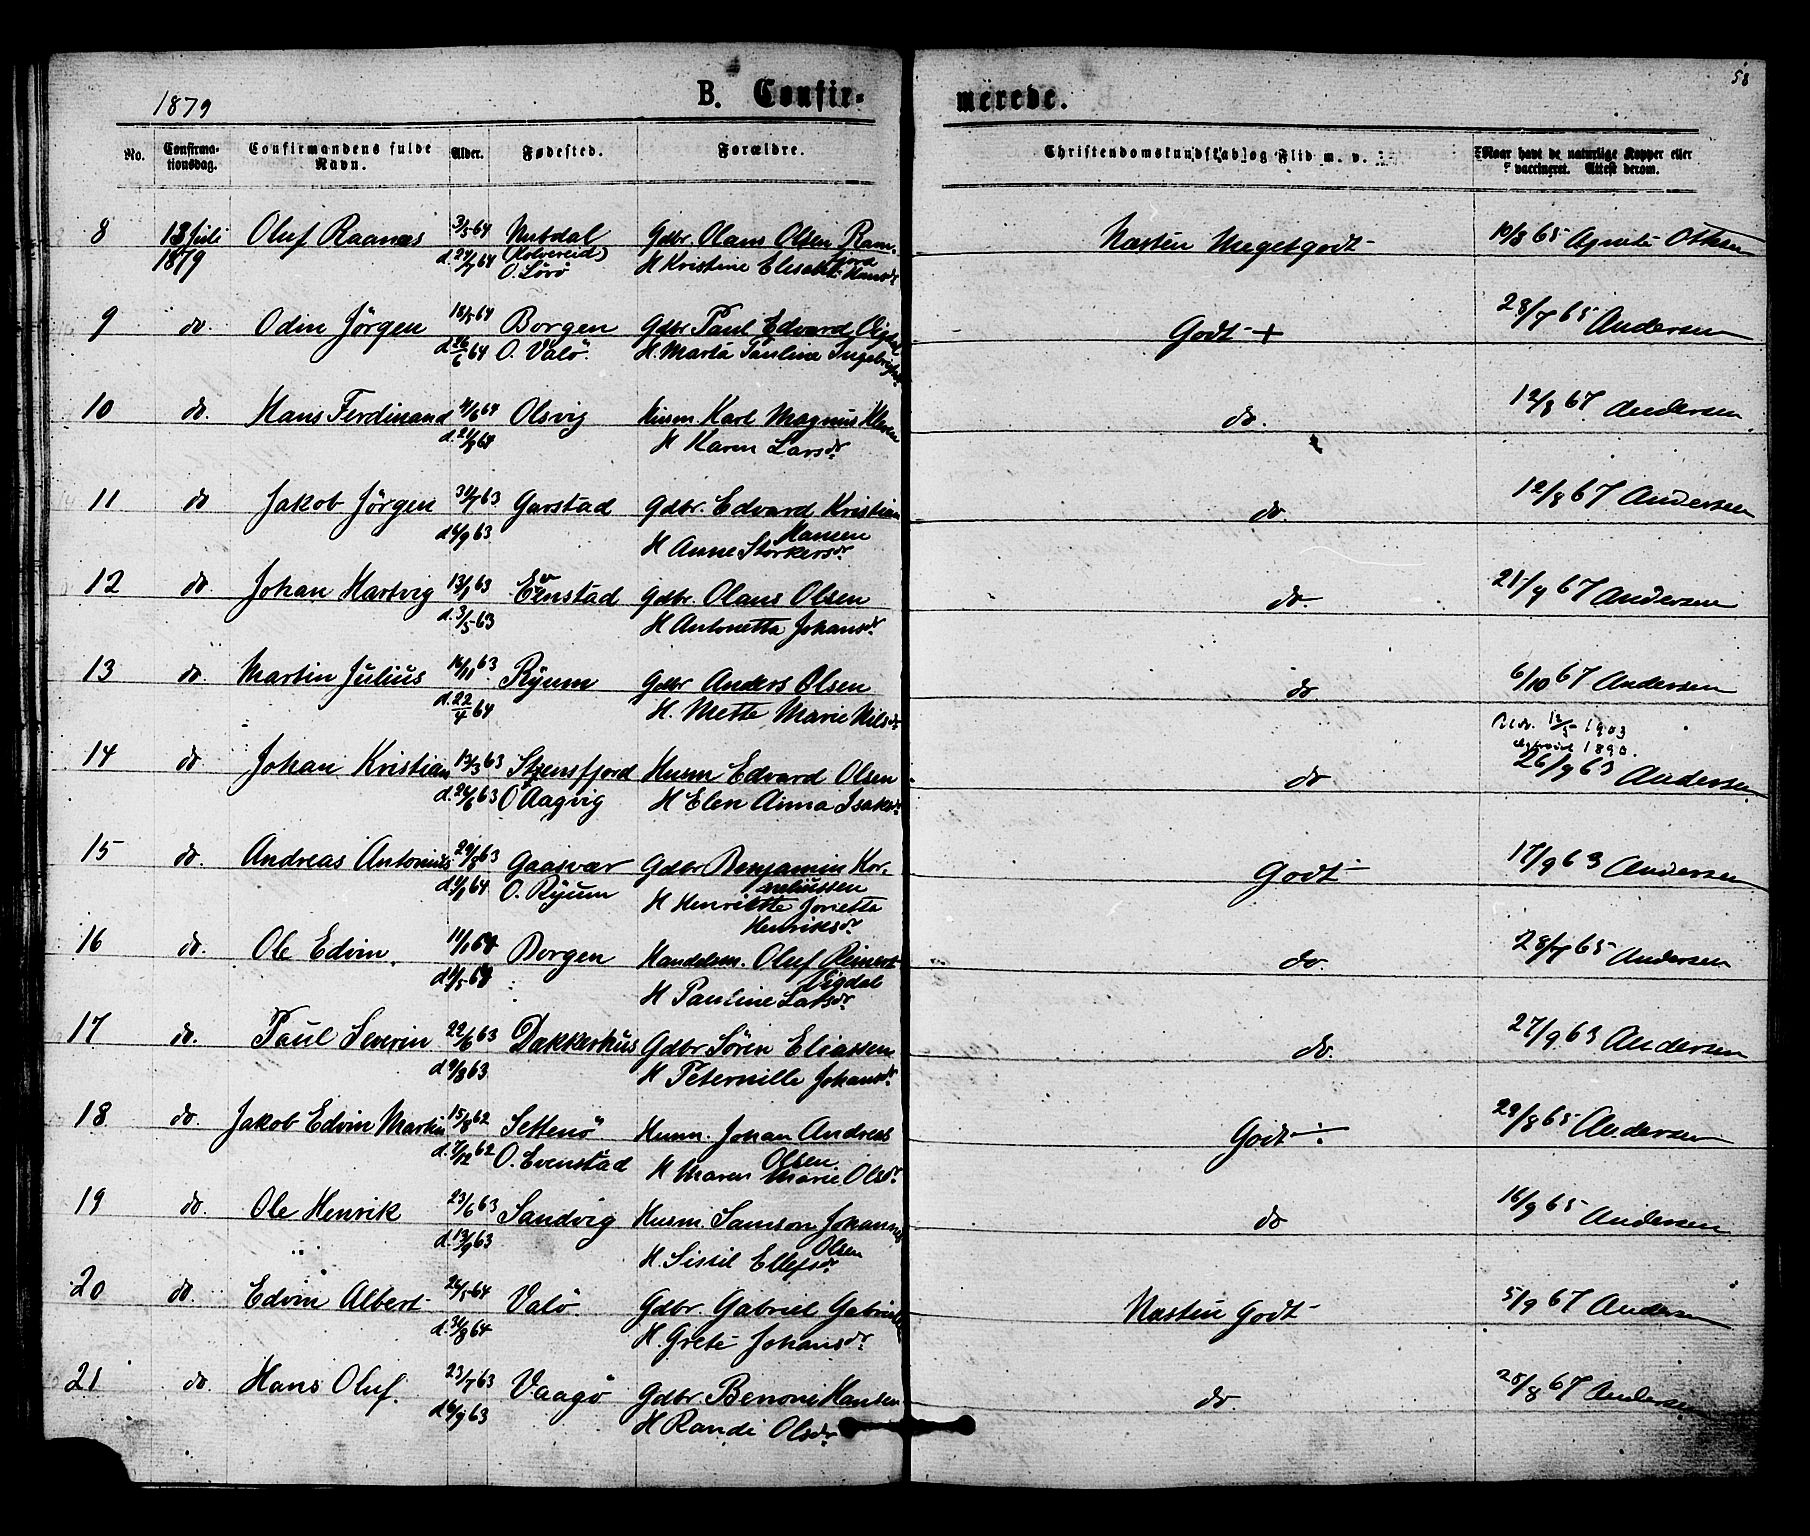 1879 B. Confirmerede. 58
No. Confirmationsdag. Confirmandens fulde Navn. Alder. Fødested. Forældre. Christendomskundskab og Flid m. v. Naar havt de naturlige Kopper eller vaccineret. Attest derom.
8 13 Juli Oluf Raanæs 3/5 64 Gdbr. Olaus Olsen Ram- Næsten Megetgodt 10/8 65 Agnete Ottesen
1879 d. 24/7 64 (Kolvereid) fjord
O. Sørø H Kristine Elisabet Hansdr.
9 do. Odin Jörgen 18/5 64 Borgen Gdbr. Paul Edvard Vigdal Godt + 28/7 65 Andersen
d. 26/6 64 O. Valö. H. Marta Pauline Ingebrigtsdr.
10 do. Hans Ferdinand 4/6 64 Olsvig Husm Karl Magnus do. 12/8 67 Andersen
d. 21/8 64 H Karen Larsdr.
11 do Jakob Jörgen 31/7 63 Garstad Gdbr. Edvard Kristian do. 12/8 67 Andersen
d 4/9 63 Hansen
H Anne Storkersdr.
12 do. Johan Hartvig 13/1 63 Evenstad Gdbr. Olaus Olsen do. 21/9 67 Andersen
d. 3/5 63 H Antonetta Johansdr.
13 do. Martin Julius 14/11 63 Ryum Gdbr Anders Olsen do 6/10 67 Andersen
d. 22/4 64 H. Mette Marie Nilsdr.
12/5 1903
1890.
14 do Johan Kristian 13/3 63 Stensfjord Husm Edvard Olsen do 26/9 63 Andersen
d. 24/6 63 O Aagvig H Elen Anna Isaksdr.
15 do. Andreas Antonius 29/8 63 Gaasvær Gdbr Benjamin Kor- Godt 17/9 63 Andersen
d. 1/1 64 O. Ryum neliussen
H Henriktte Jonetta
Henriksdr.
16 do. Ole Edvin. 11/1 64 Borgen Handelsm. Oluf Reinert do. 28/7 65 Andersen
d 4/5 64 Vigdal
H Pauline Larsdr.
17 do. Paul Severin 22/6 63 Dækkerhus Gdbr Sören Eliassen do. 27/9 63 Andersen
d 9/8 63 H Peternille Johansdr.
18 do Jakob Edvin Martin 15/8 62 Settenö Husm. Johan Andreas Godt ÷ 29/8 65 Andersen
d. 7/12 62 O. Evenstad Olsen.
H Maren Marie Olsdr.
19 do. Ole Henrik 23/6 63 Sandvig Husm. Samson Johannes do 16/9 65 Andersen
d. 13/9 63 Olsen
H. Sissil Ellefsdr.
20 do. Edvin Albert 24/5 64 Valö Gdbr. Gabriel Gabrielsen Næsten Godt 5/9 67 Andersen
d. 31/8 64 H. Grete Johansdr.
21 do. Hans Oluf. 23/7 63 Vaagö Gdbr. Benoni Hansen do. 28/8 67 Andersen
d 6/9 63 H Randi Olsdr.